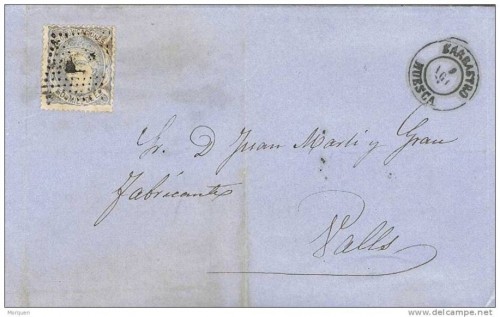 BARBASTRO
HUESCA
Sr. D. Juan Martí y Grau
Fabricante
Valls
Moriyuen
www.delcampe.net